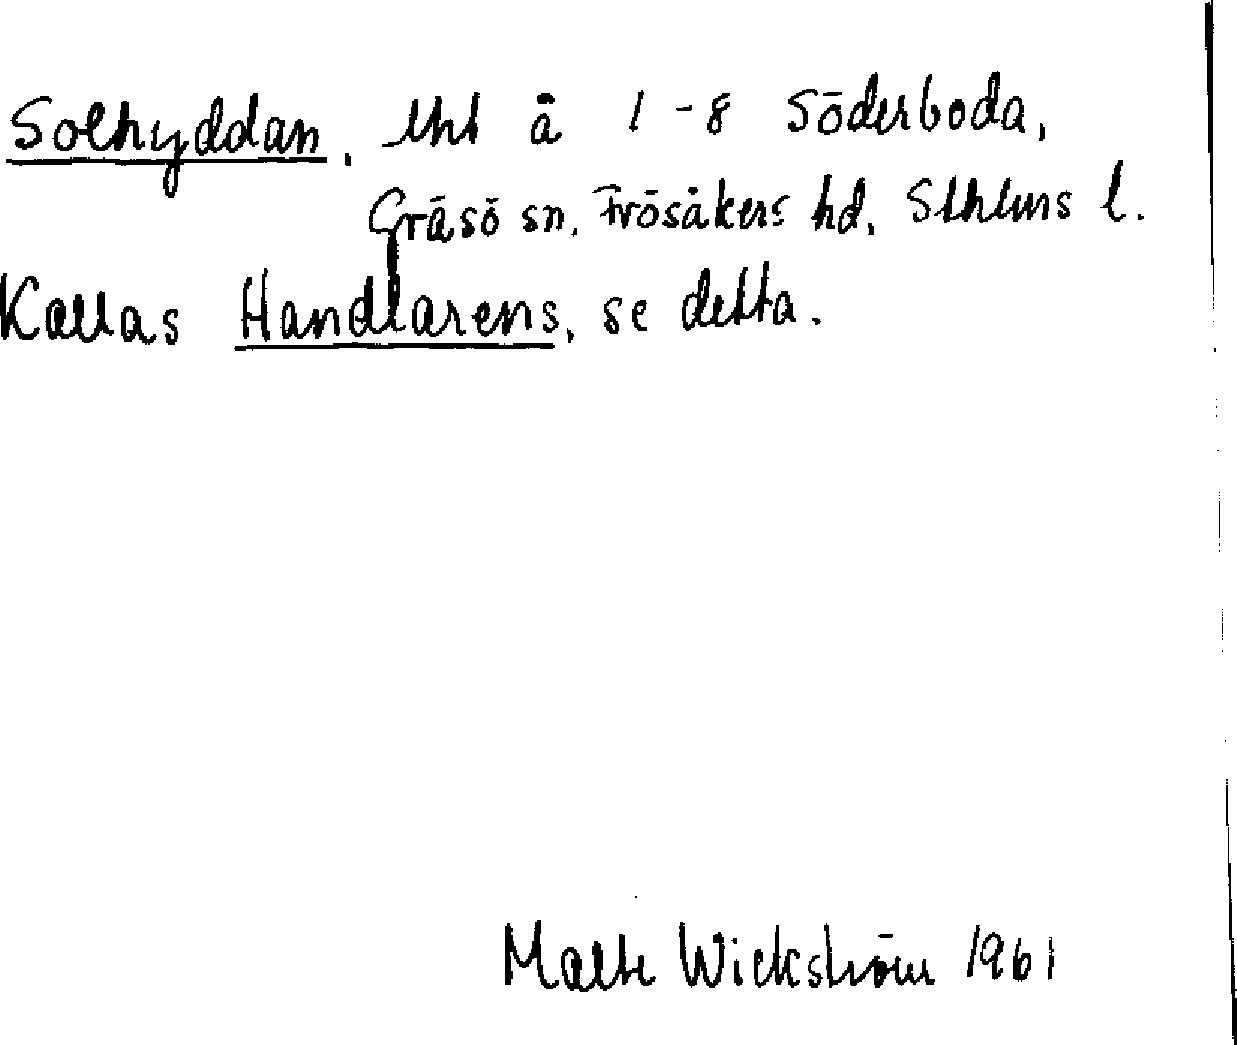 Solhyddan, lht å 1-8 Söderboda,
Gräsö sn, Frösåkers hd, Sthlms l.
Kallas Handlarens, se detta.
Malte Wickström 1961